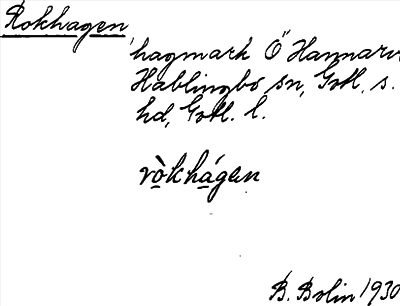 Rokhagen
hagmark Ö Hannarv
Hablingbo sn, Gotl. s.
hd, Gotl. l.
ròkhágen
B. Bolin 1930